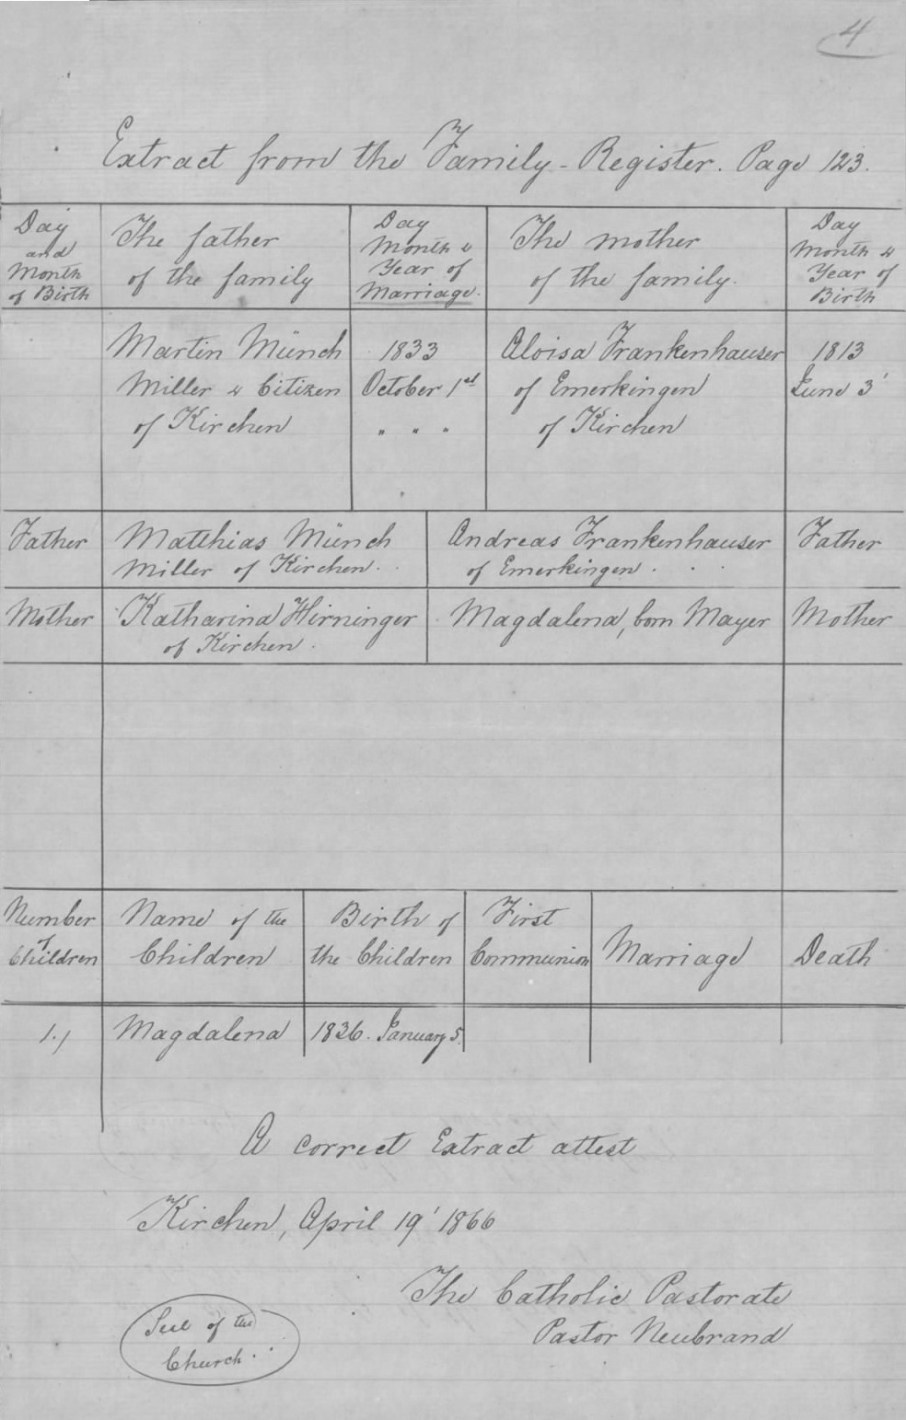 4
Extract from the Family-Register. Page 123.
Day
and
Month
of Birth
The father
of the family
Day
Month &
Year of
Marriage.
The mother
of the family.
Day
Month &
Year of
Birth
Martin Münch
Miller & Citizen
of Kirchen
1833
October 1st
" " "
Aloisa Frankenhauser
of Emerkingen
of Kirchen
1813
June 3'
Father
Matthias Münch
Miller of Kirchen.
Andreas Frankenhauser
of Emerkingen.
Father
Mother
Katharina Hirninger
of Kirchen.
Magdalena, born Mayer
Mother
Number
of
Children
Name of the
Children
Birth of
the Children
First
Communion
Marriage
Death
1.)
Magdalena
1836. January 5.
A correct Extract attest
Kirchen, April 19' 1866
The Catholic Pastorate
Pastor Neubrand
Seel of the
Church.